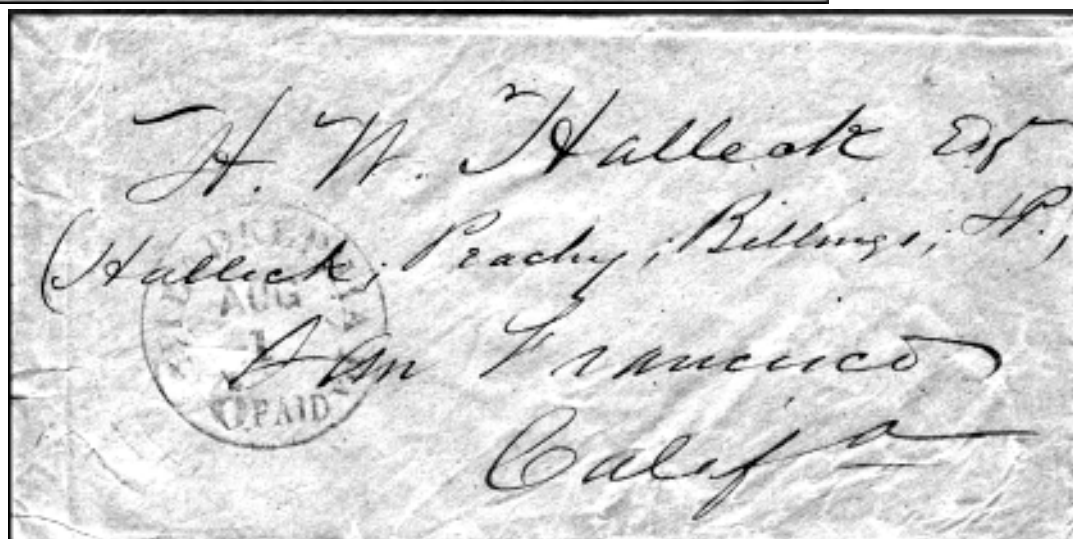 H. W. Halleck Esq
(Halleck, Peachy, Billings,
San Francisco
Califa
PHILADELPHIA
AUG
1
PAID